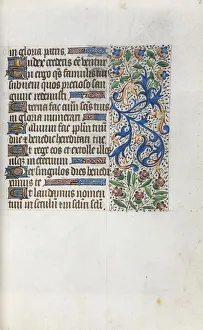 in gloria patris.
Iudex crederis esse uenturus
Te ergo quesumus famulis tuis
subueni quos precioso san
guine redemisti
Eterna fac cum sanctis tuis
in gloria numerari
Saluum fac populum tuum
domine et benedic hereditati tue
Et rege eos et extolle illos
usque in eternum
Per singulos dies benedi
cimus te
Et laudamus nomen
tuum in seculum et in seculum seculi